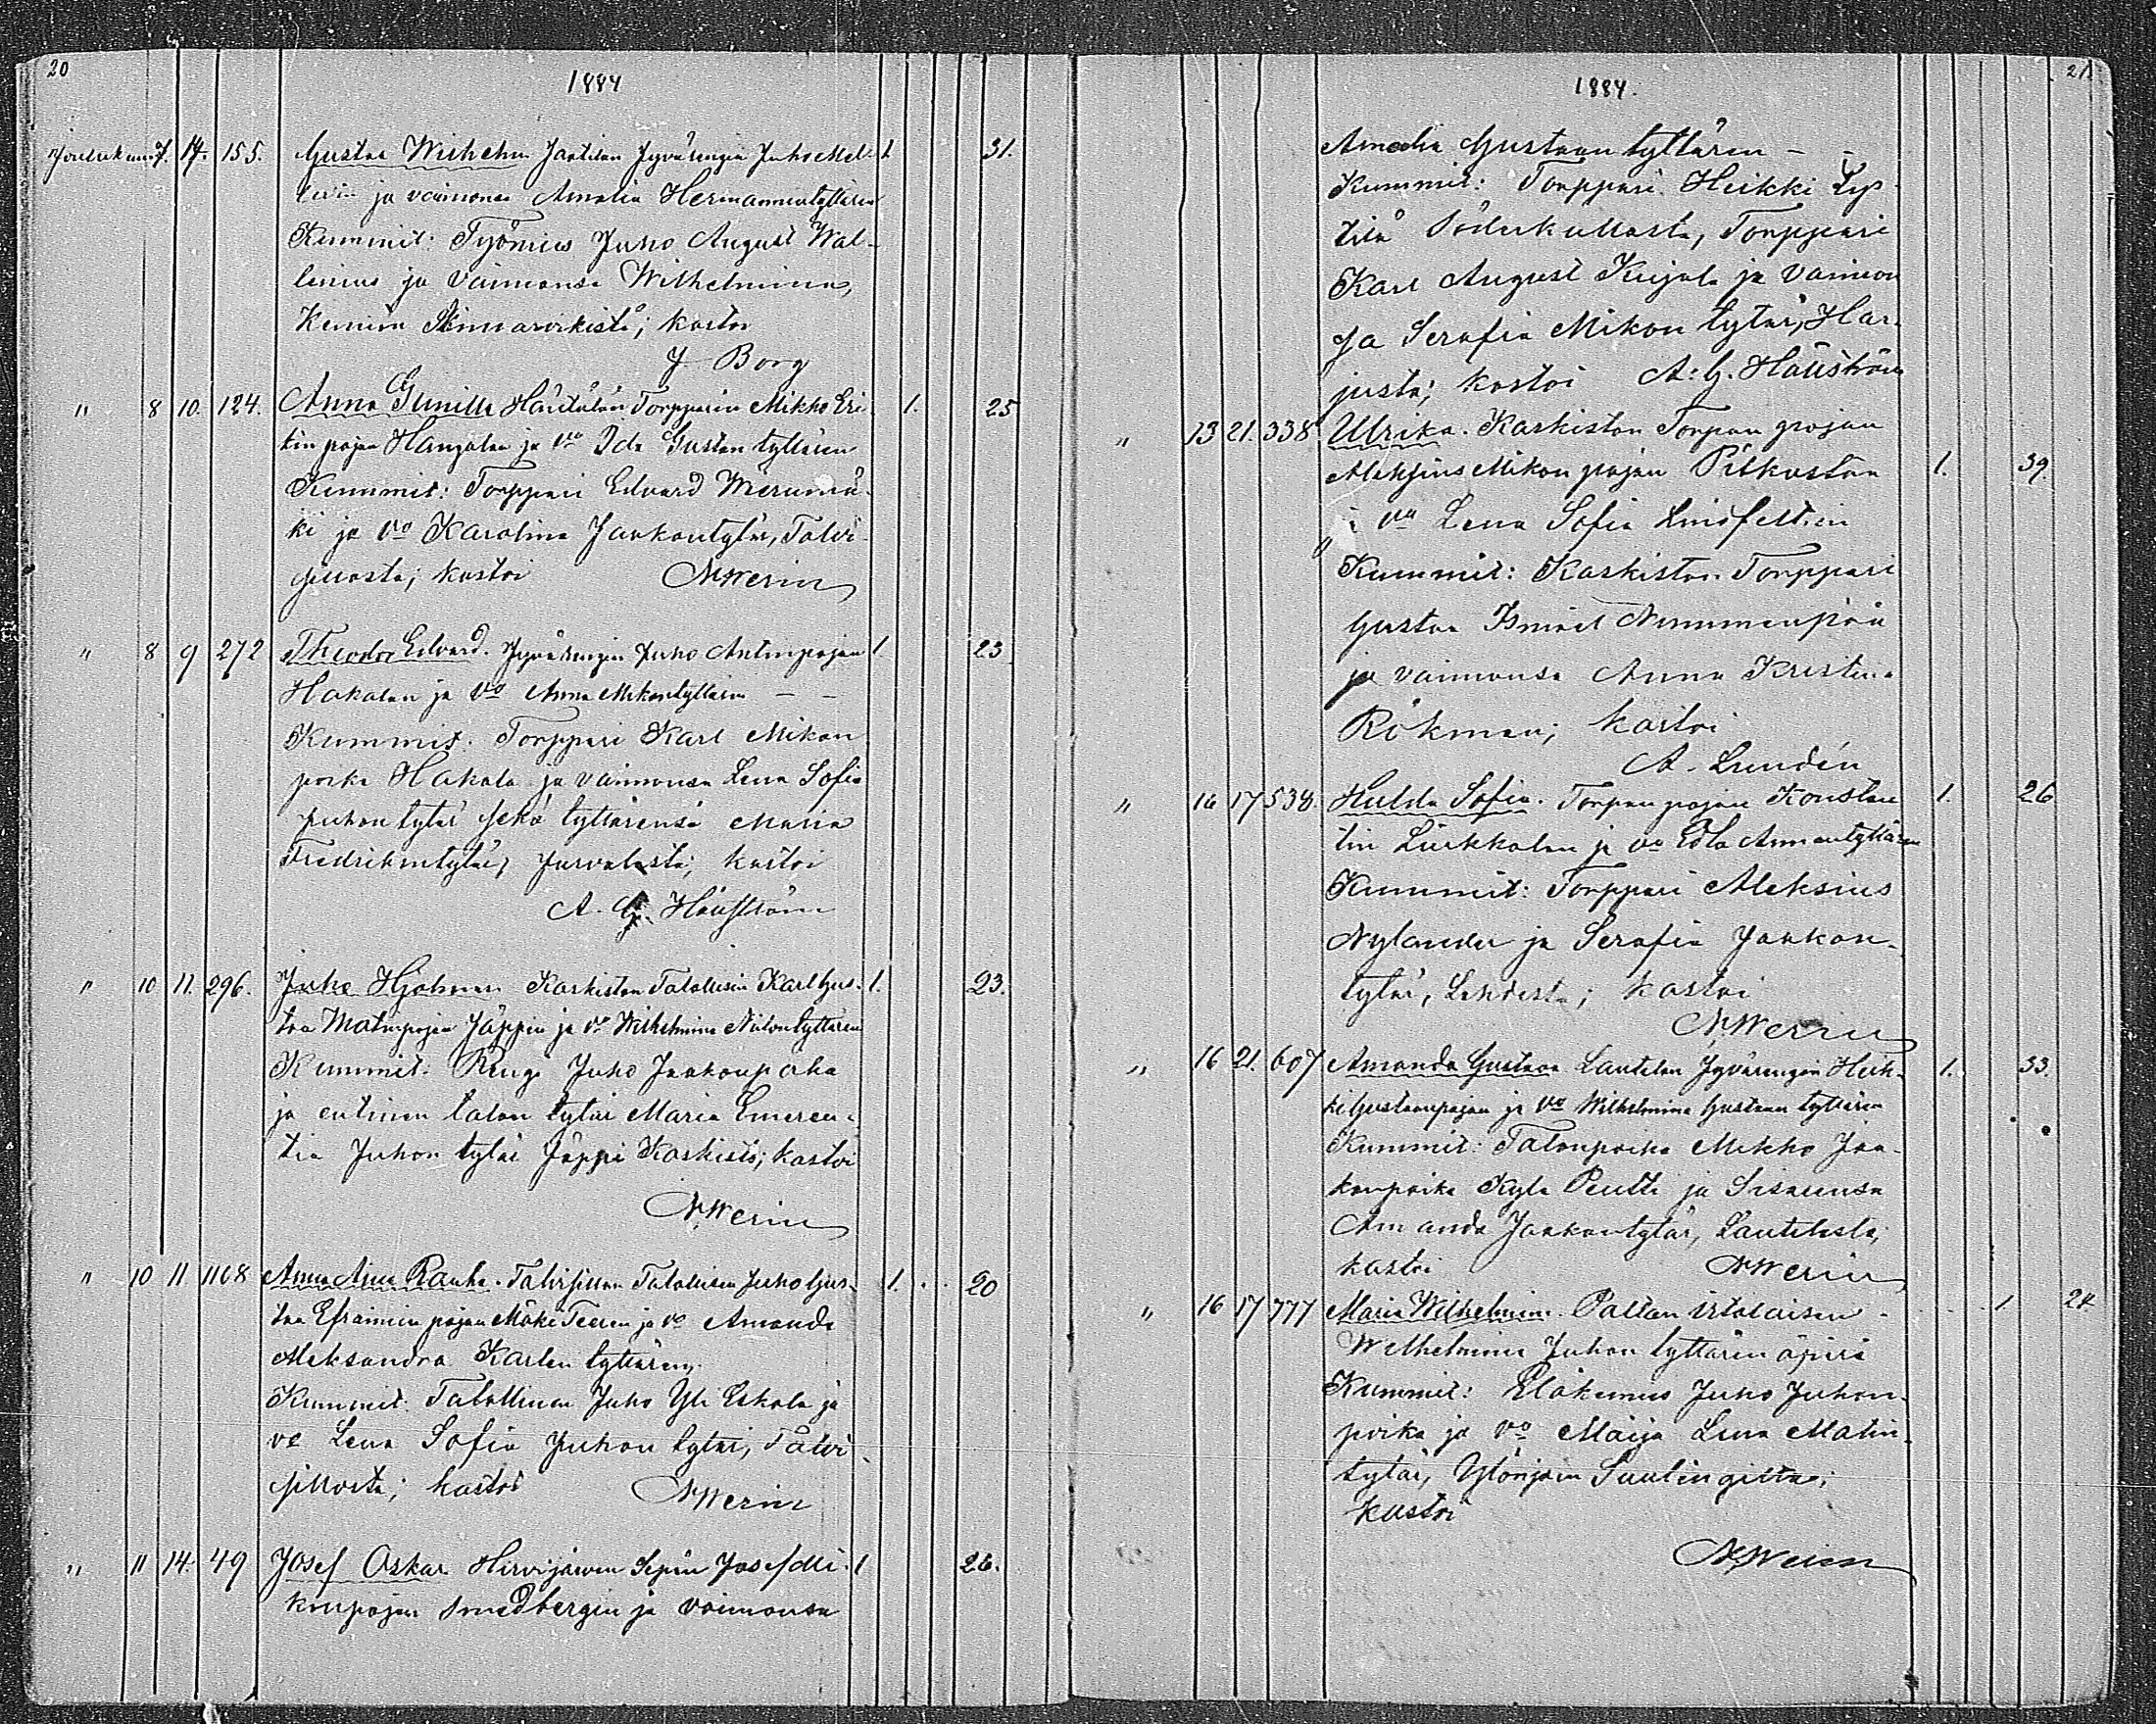 20
1884
7. 14. 155. Gustav Wilhelm Jyvärengin Juho Mel- 1 31.
ja vaimonsa Amalia Hermannintyttären
Kummit: Työmies Juho August Wal-
lenius ja vaimonsa Wilhelmina,
kastoi
J Borg
" 8 10. 124. Anna Gunilla Torpparin Mikko Eri- 1. 25
kin pojan ja vo Ida Gustan tyttären
Kummit: Torppari Edvard
ki ja vo Karolina Jaakontytär, Talvi-
silloista; kastoi N. Werin
" 8 9 272 Theodor Edvard. Jyvärengin Juho Antinpojan 1 23
Hakalan ja vo Anna Mikontyttären – –
Kummit. Torppari Karl Mikon
poika Hakala ja vaimonsa Lena Sofia
Juhon tytär sekä tyttärensä Maria
Fredrikintytär, Jurvalasta; kastoi
A. G. Hällström
" 10 11. 296. Juho Hjalmar Karkiston Talollisen Karl Gus- 1. 23.
taa Matinpojan Jäppin ja vo Wilhelmina tyttären
Kummit. Rengi Juho Jaakonpoika
ja entinen talon tytär Maria Emeren-
tia Juhon tytär Jäppi Karkisto; kastoi
N. Werin
" 10 11 1168 Anna Aina Rauha. Talvisillan Talollisen Juho Gus- 1. 20
taa Efraimin pojan Mäki Teeren ja vo Amanda
Aleksandra Karlen tyttären
Kummit: Talollinen Juho Yli Eskola ja
vo Lena Sofia Juhon tytär, Talvi-
silloista; kastoi N. Werin
" 11 14. 49 Josef Oskar. Hirvijärven Sepän Josef Mi- 1 26.
konpojan Smedbergin ja vaimonsa
21.
1884.
Amalia Gustaan tyttären – –
Kummit: Torppari Heikki
Söderkullasta, Torppari
Karl August Kujala ja vaimon
sa Serafia Mikon tytär, Har-
justa; kastoi A. G. Hällström
" 13 21. 338 Ulrika. Karkiston Torpan pojan
Mikon pojan 1. 39.
ja vo Lena Sofia
Kummit: Karkiston Torppari
Gustaa Ismael Nummenpää
ja vaimonsa Anna Kristina
Rökman; kastoi
A. Lundén
" 16 17 538. Hulda Sofia. Torpan pojan Konstan 1. 26
tin Liikkalan ja vo Edla tyttären
Kummit: Torppari Aleksius
Nylander ja Serafia Jaakon-
tytär, kastoi
N. Werin
" 16 21. 607 Amanda Gustava Lautelan Jyvärengin Heik- 1. 33.
ki Gustaanpojan ja vo Wilhelmina Gustaan tyttären
Kummit: Talonpoika Mikko Jaa-
konpoika Kylä Pentti ja Sisarensa
Amanda Jaakontytär, Lautelasta;
kastoi N. Werin
" 16 17 777 Maria Wilhelmina. Paltan itsellisen – 1 24
Wilhelmina Juhon tyttären äpärä
Kummit: Eläkemies Juho Juhon-
poika ja vo Maija Lena Matin-
tytär,
kastoi
N. Werin